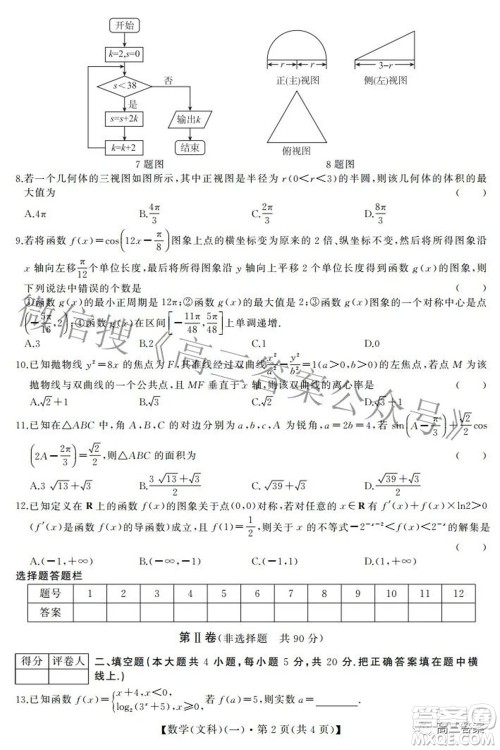 开始
k=2,s=0
s<38
否
是
s=s+2k
输出k
k=k+2
结束
7题图
r
r
正(主)视图
3-r
侧(左)视图
俯视图
8题图
8.若一个几何体的三视图如图所示,其中正视图是半径为r(0<r<3)的半圆,则该几何体的体积的最
大值为 ( )
A.4π B.4π/3 C.2π/3 D.8π/3
9.若将函数f(x)=cos(12x-π/8)图象上点的横坐标变为原来的2倍、纵坐标不变,再将所得图象沿
x轴向左移 个单位长度,最后将所得图象沿y轴向上平移2个单位长度,得到函数g(x)的图象,则
下列说法中错误的个数为 ( )
①函数g(x)的最小正周期是12π;②函数g(x)的最大值是2;③函数g(x)图象的对称中心是
;④函数g(x)在区间[-11π/48,5π/48]上单调递减.
A.3 B.2 C.1 D.0
10.已知抛物线y²=8x的焦点为F,其准线经过双曲线 的左焦点,若点M为该
抛物线与双曲线的一个公共点,且MF垂直于x轴,则该双曲线的离心率是 ( )
A.√2+1 B.√2 C. D.√3+1
11.已知在△ABC中,角A,B,C的对边分别为a,b,c,A为锐角,且a=4√2,b=5,若
=√2/2,则△ABC的面积为 ( )
12.已知定义在R上的函数f(x)的图象关于点(0,0)对称,若对任意的x∈R有f′(x)+f(x)×ln2>0
(f′(x)是函数f(x)的导函数)成立,且f(1)=1/2,则关于x的不等式 的解集是
( )
A.(-1,+∞) B.(-1,1) C.(-∞,1) D.(1,+∞)
选择题答题栏
题号 1 2 3 4 5 6 7 8 9 10 11 12
答案
第Ⅱ卷(非选择题 共90分)
得分 评卷人
二、填空题(本大题共4小题,每小题5分,共20分.把正确答案填在题中横
线上.)
【数学(文科)(一)·第2页(共4页)】
微信搜《高三答案公众号》
高三答案